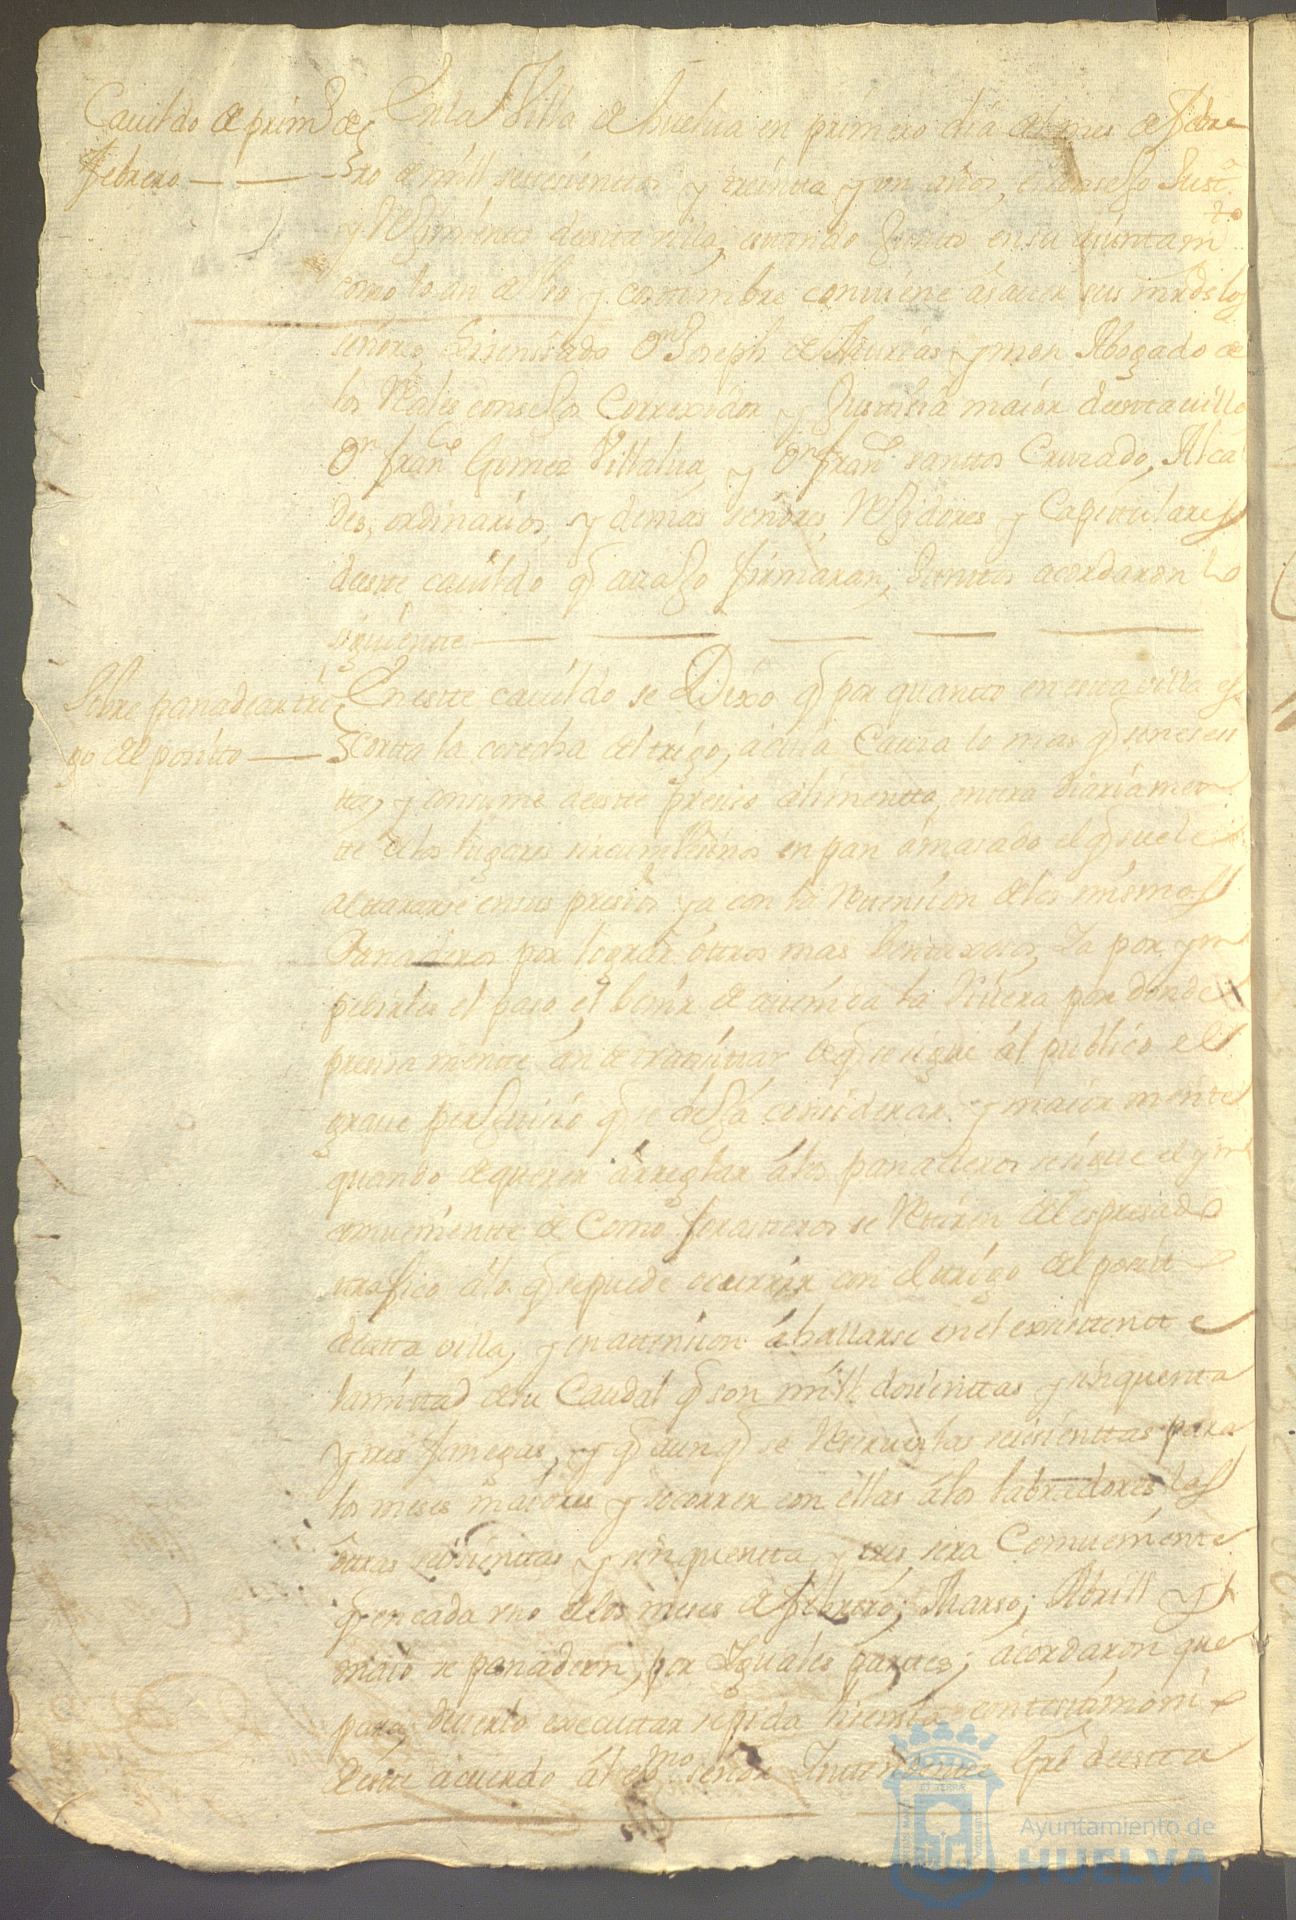 Cauildo de prim.º de
febrero
En la Villa de huelua en primero dia del mes de febre
ro de mill setesientos y treinta y un años, el consejo Just.ª
y Regimiento de esta villa, estando junto en su aiuntam.to
como lo an de Uso y costumbre conuiene a sauer sus mrds los
señores Lisensiado Dn Joseph de Asturias ymon Abogado de
los Rales consejos Correxidor y Justisia maior de esta villa
Dn fran.co Gomez Villalua, y Dn fran.co santtos Cruzado, Alca
des, ordinarios, y demas señores Regidores y Capittulares
de este cauildo q auajo firmaran, Junttos acordaron lo
siguiente
Sobre panadear tri
go del posito
En este cauildo se Dixo q por quantto en esta villa es
cortta la cosecha del trigo, a cuia Causa lo mas q se nesesi
tta, y consume de este presiso alimentto, entra diariamen
te de los lugares sircumbesinos en pan amasado el q suele
alttararse en sus presios ya con la de los mismos
Panaderos por lograr otros mas bentaxosos, Ya por ym
pedirles el paso, el benir de auenida la Riuera por donde
presisamente an de transitar de q se sigue al publico el
graue perjuisio q se deja considerar y maiormente
quando de querer arreglar a los panaderos se sigue el yn
combeniente de Como forasteros se Retiren del espresado
trafico a lo q se puede ocurrir con el trigo del posito
de esta villa, y en attension a hallarse en el existente
la mittad de su Caudal q son mill dosienttas y sinquenta
y tres fanegas, y q aunq se Reseruen las seisienttas para
los meses maiores y socorrer con ellas a los labradores las
otras seisienttas y sinquentta y tres sera Comueniente
q en cada vno de los meses de febrero; Marso; Abrill y
maio se panadeen, por Yguales partes; acordaron que
para poderlo executtar se pida lisensia con testimoni
de este acuerdo al Ylmo señor Yntendente Gral de esta
Ayuntamiento de
HUELVA